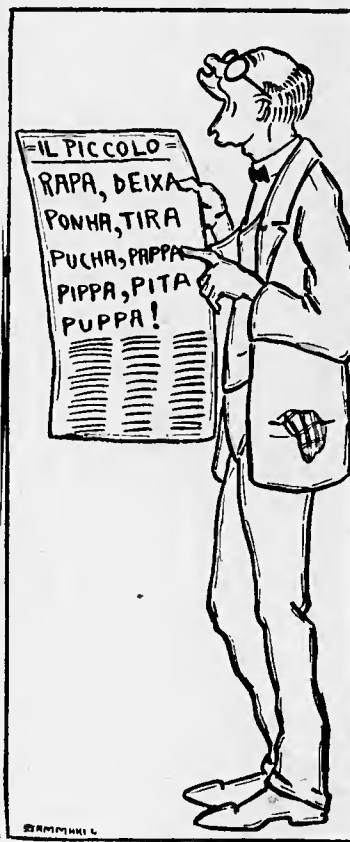 =IL PICCOLO=
RAPA, DEIXA
PONHA, TIRA
PUCHA, PAPPA
PIPPA, PITA
PUPPA!